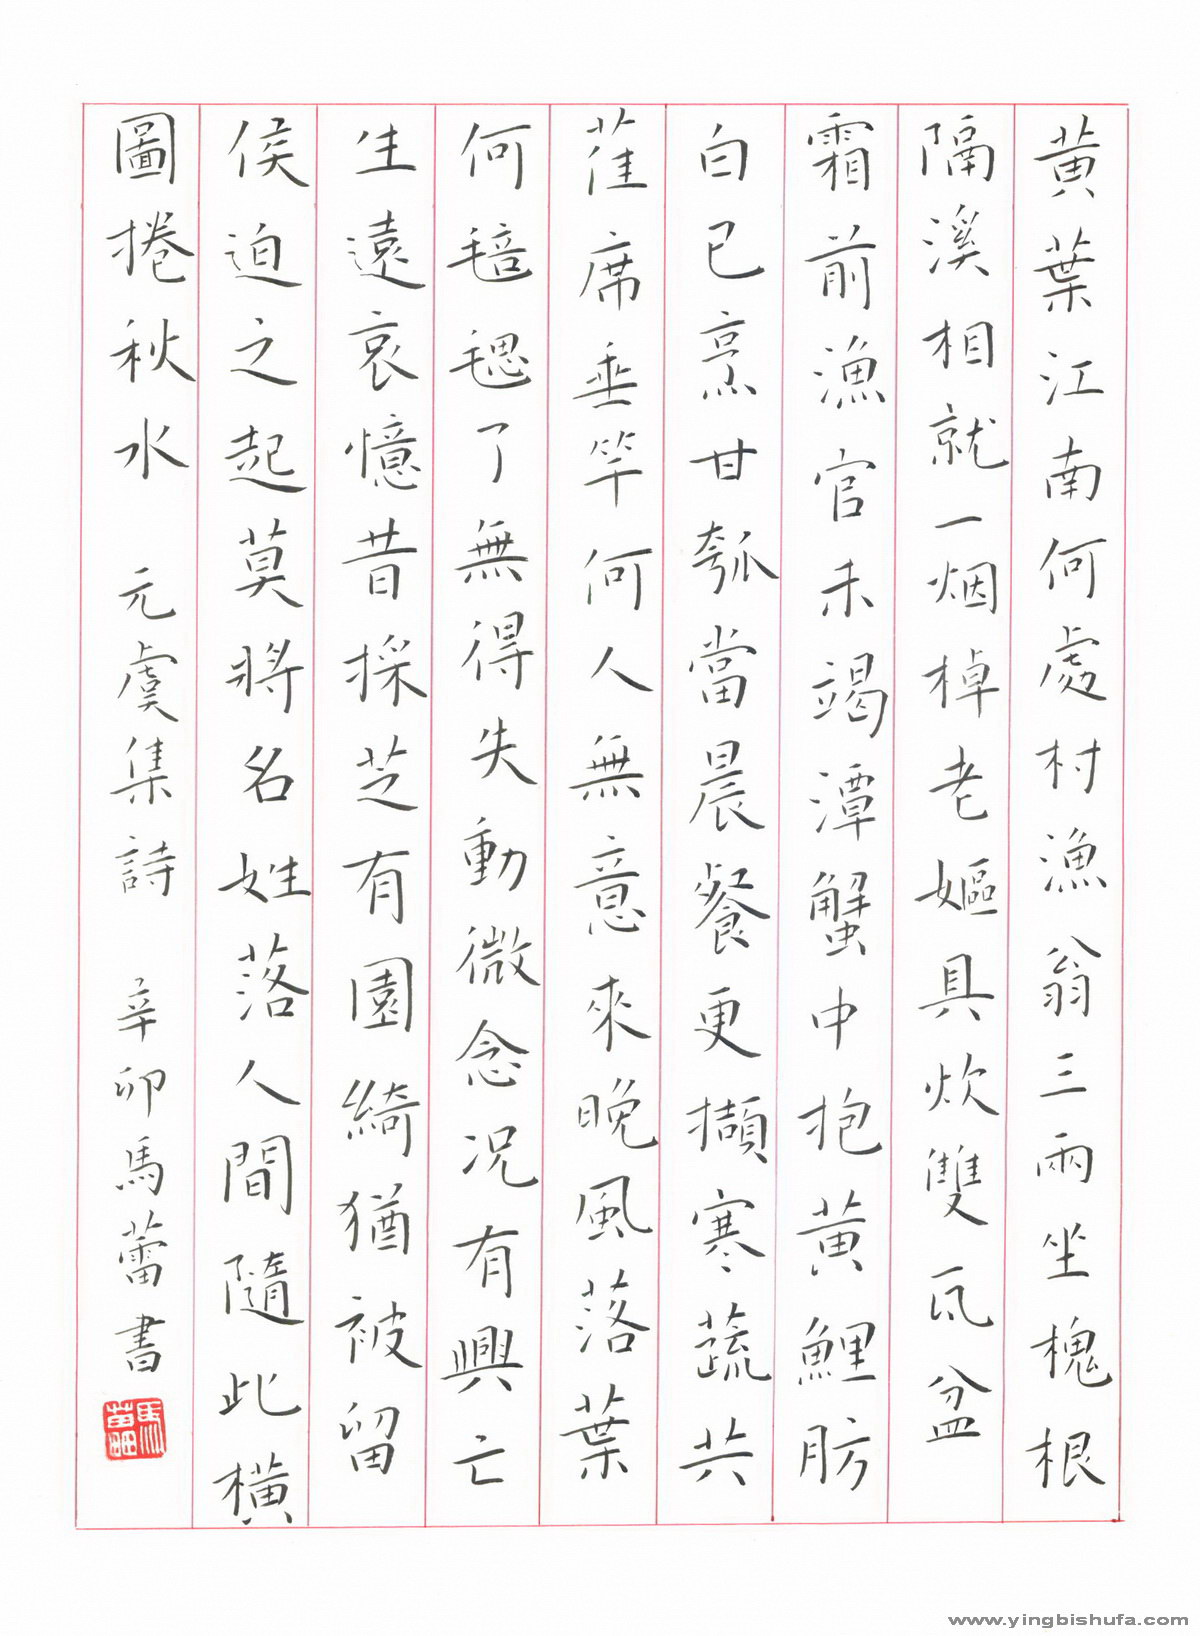 黃葉江南何處村漁翁三兩坐槐根
隔溪相就一烟棹老嫗具炊雙瓦盆
霜前漁官未竭潭蟹中抱黃鯉肪
白已烹甘瓠當晨餐更擷寒蔬共
萑席垂竿何人無意來晚風落葉
何毰毸了無得失動微念況有興亡
生遠哀憶昔採芝有園綺猶被留
侯迫之起莫將名姓落人間隨此橫
圖捲秋水 元虞集詩 辛卯馬蕾書
馬蕾
www.yingbishufa.com